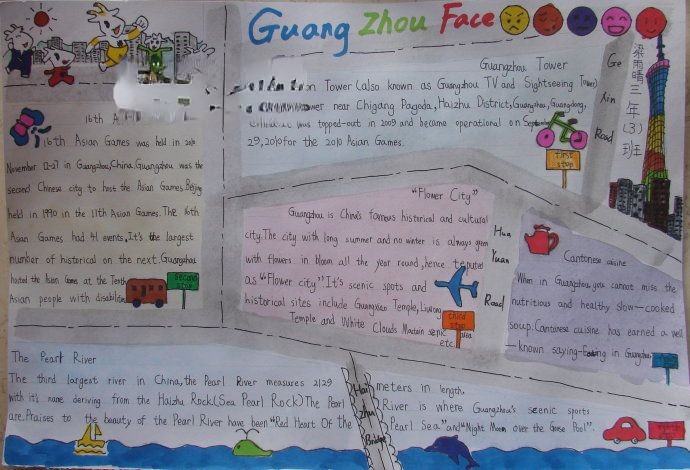 Guang Zhou Face
Guangzhou Tower
Tower (also known as Guangzhou TV and Sightseeing Tower)
near Chigang Pagoda, Haizhu District, Guangzhou, Guangdong,
was topped-out in 2009 and became operational on September
29, 2010 for the 2010 Asian Games.
first stop
Ge
Xin
Road
梁雨晴三年(3)班
16th A
16th Asian Games was held in 2010
November 12-27 in Guangzhou, China. Guangzhou was the
second Chinese city to host the Asian Games, Beijing
held in 1990 in the 11th Asian Games. The 16th
Asian Games had 41 events, It's the largest
number of historical on the next. Guangzhou
hosted the Asian Games at the Tenth
Asian people with disabilities
second stop
"Flower City"
Guangzhou is China's famous historical and cultural
city. The city with long summer and no winter is always green
with flowers in bloom all the year round, hence reputed
as "Flower city" It's scenic spots and
historical sites include Guangxiao Temple, Liurong
Temple and White Clouds Scenic area
etc.
third stop
Hua
Yuan
Road
Cantonese cuisine
When in Guangzhou, you cannot miss the
nutritious and healthy slow-cooked
soup. Cantonese cuisine has earned a well
-known saying-Eating in Guangzhou
The Pearl River
The third largest river in China, the Pearl River measures 2129 meters in length.
with it's name deriving from the Haizhu Rock (Sea Pearl Rock) The Pearl River is where Guangzhou's scenic sports
are. Praises to the beauty of the Pearl River have been "Red Heart Of the Pearl Sea" and "Night Moon over the Goose Pool".
Hai
Zhu
Bridge